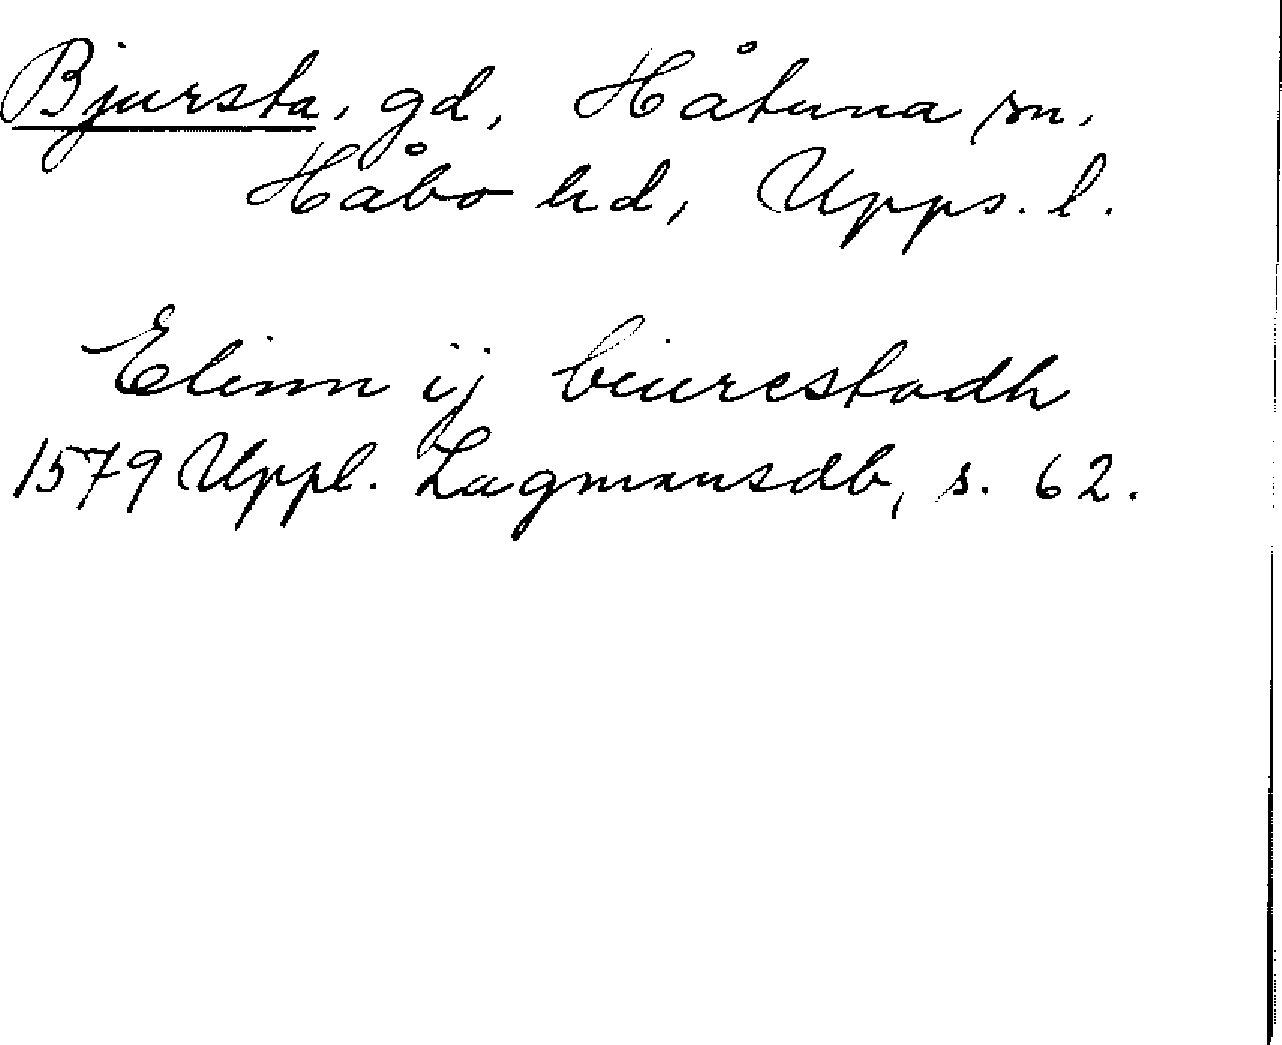 Bjursta, gd, Håtuna sn,
Håbo hd, Upps. l.
Elinn ij biurestadh
1579 Uppl. Lagmansdb, s. 62.